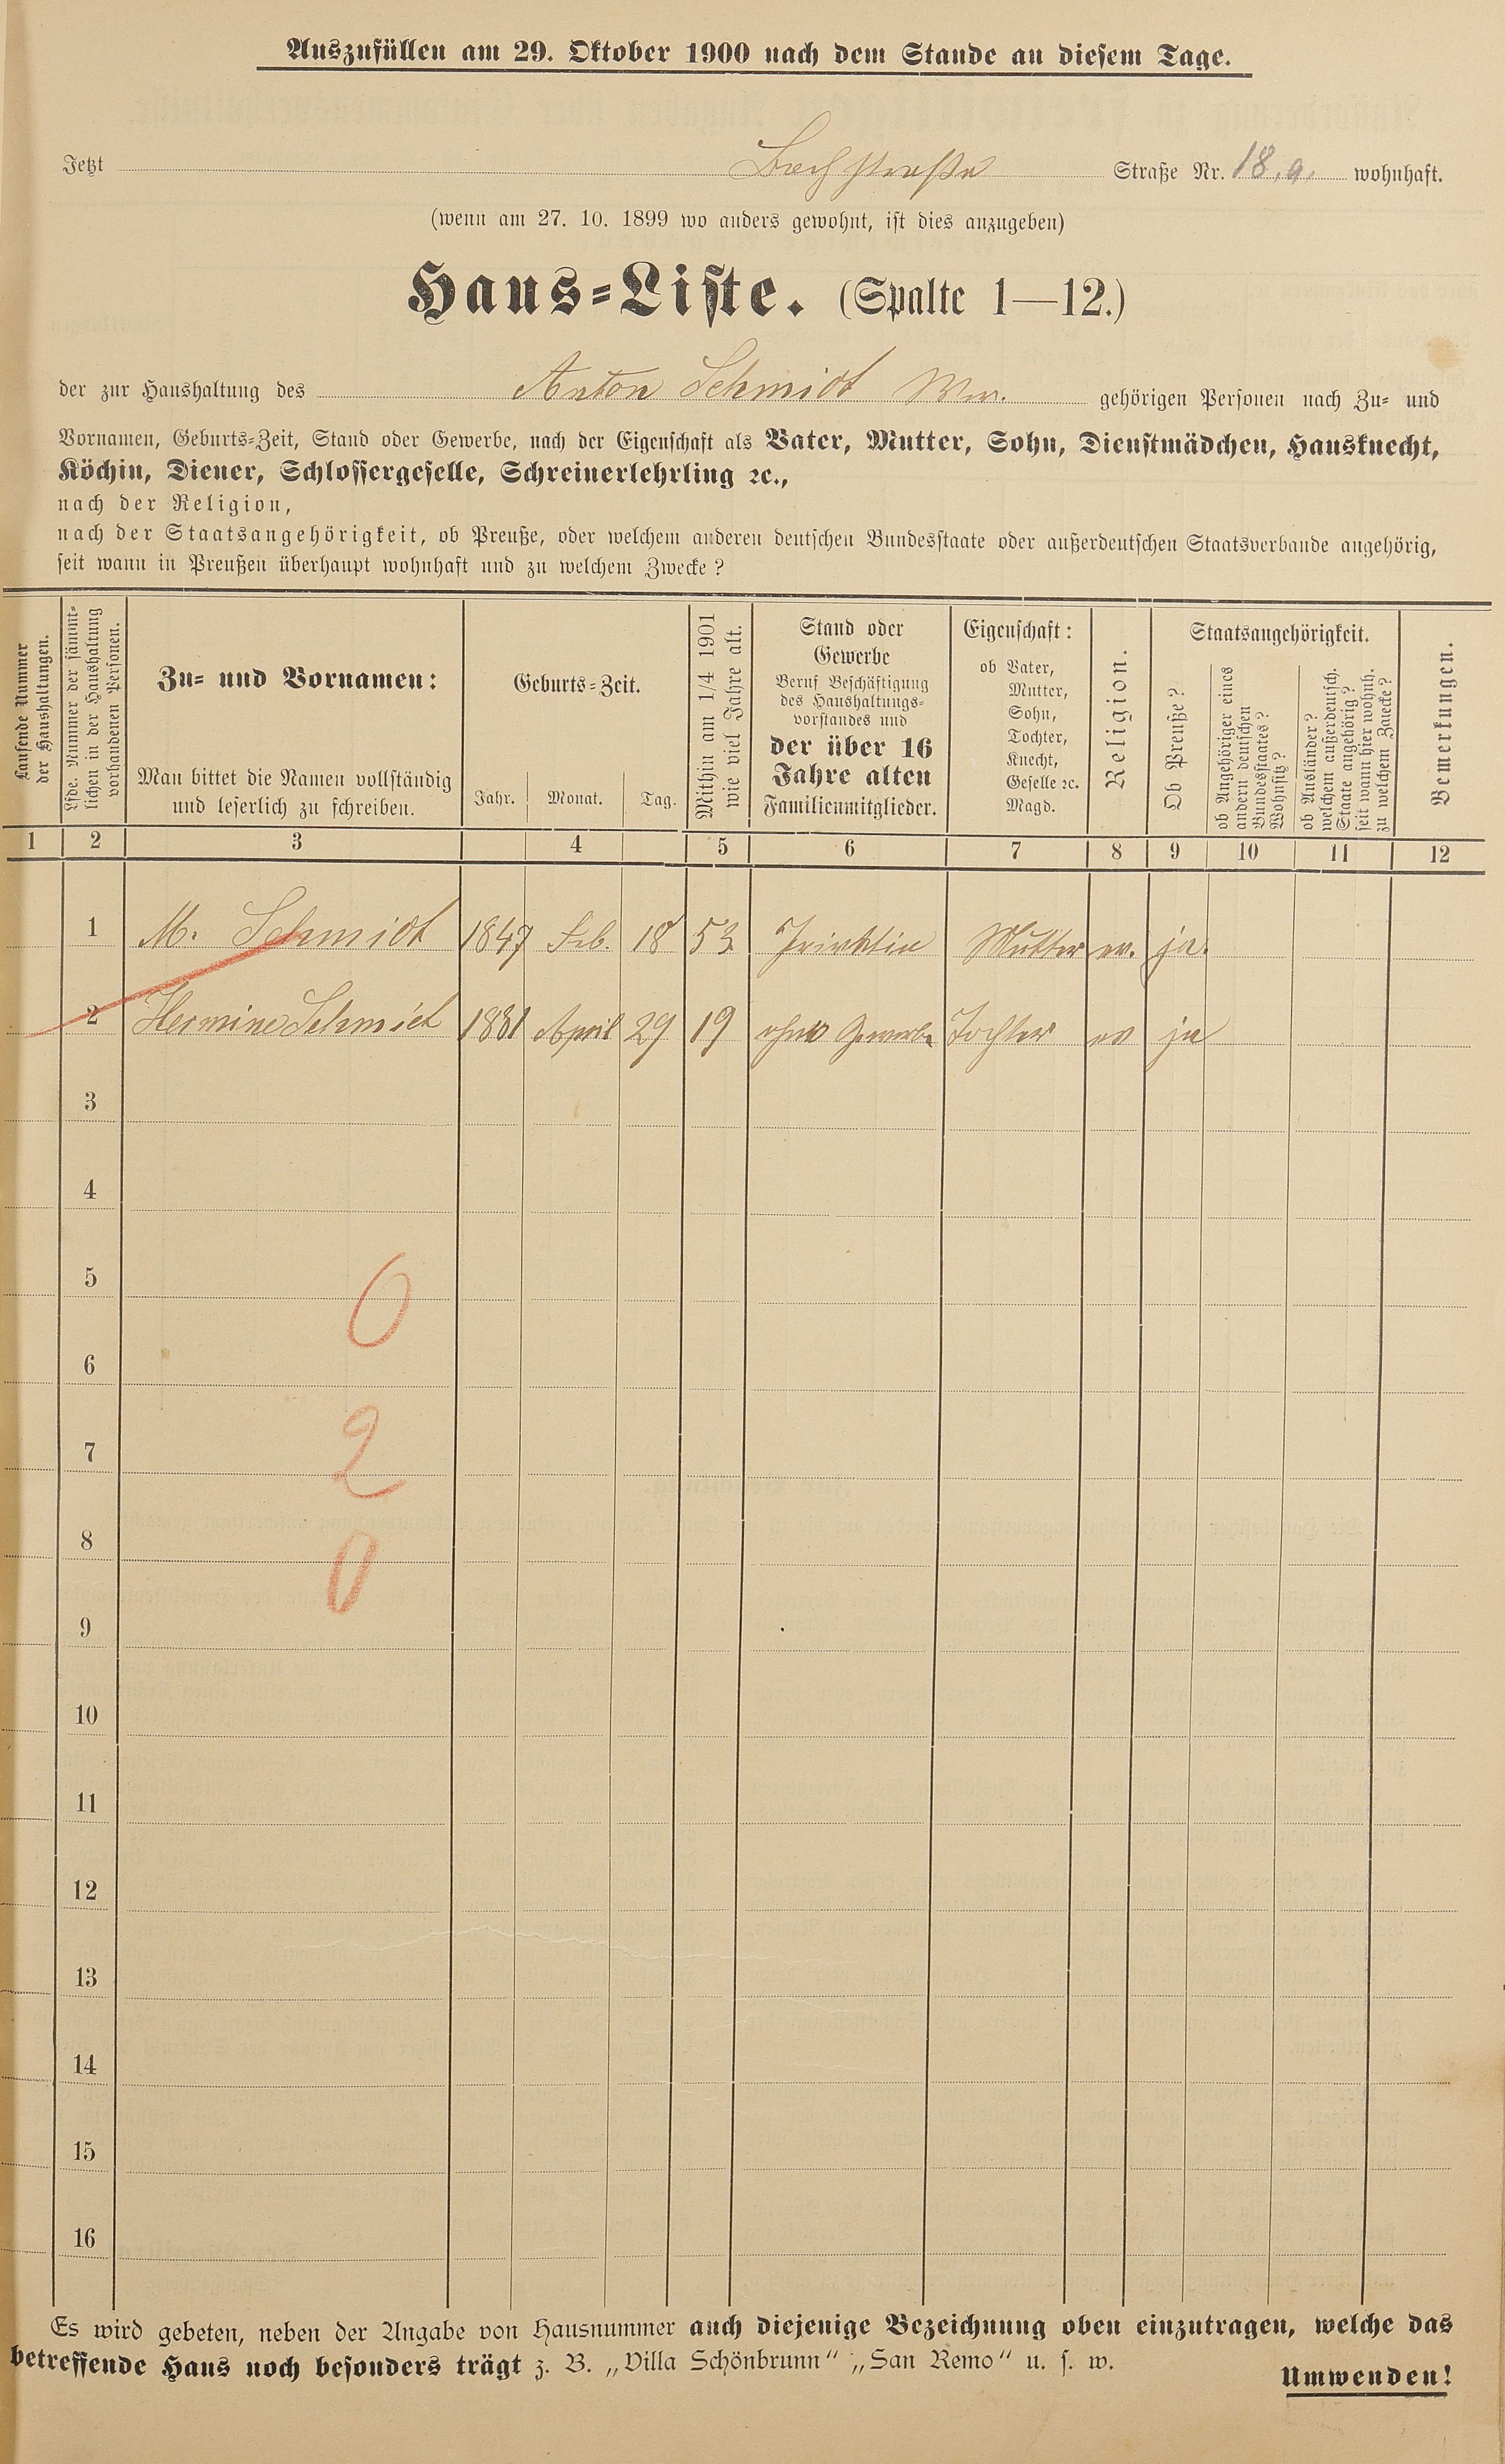 Auszufüllen am 29. Oktober 1900 nach dem Stande an diesem Tage.
Jetzt Bachstraße Straße Nr. 18.a. wohnhaft.
(wenn am 27. 10. 1899 wo anders gewohnt, ist dies anzugeben)
Haus-Liste. (Spalte 1—12.)
der zur Haushaltung des Anton Schmidt Ww. gehörigen Personen nach Zu- und
Vornamen, Geburts-Zeit, Stand oder Gewerbe, nach der Eigenschaft als Vater, Mutter, Sohn, Dienstmädchen, Hausknecht,
Köchin, Diener, Schlossergeselle, Schreinerlehrling ꝛc.,
nach der Religion,
nach der Staatsangehörigkeit, ob Preuße, oder welchem anderen deutschen Bundesstaate oder außerdeutschen Staatsverbande angehörig,
seit wann in Preußen überhaupt wohnhaft und zu welchem Zwecke?
Laufende Nummer
der Haushaltungen.
Lfde. Nummer der sämmt-
lichen in der Haushaltung
vorhandenen Personen.
Zu- und Vornamen:
Man bittet die Namen vollständig
und leserlich zu schreiben.
Geburts-Zeit.
Jahr. Monat. Tag.
Mithin am 1/4 1901
wie viel Jahre alt.
Stand oder
Gewerbe
Beruf Beschäftigung
des Haushaltungs-
vorstandes und
der über 16
Jahre alten
Familienmitglieder.
Eigenschaft:
ob Vater,
Mutter,
Sohn,
Tochter,
Knecht,
Geselle ꝛc.
Magd.
Religion.
Staatsangehörigkeit.
Ob Preuße?
ob Angehöriger eines
andern deutschen
Bundesstaates?
Wohnsitz?
ob Ausländer?
welchem außerdeutsch.
Staate angehörig?
seit wann hier wohnh.
zu welchem Zwecke?
Bemerkungen.
1 2 3 4 5 6 7 8 9 10 11 12
1 M. Schmidt 1847 Feb. 18 53 Mutter ev. ja.
2 Hermine Schmidt 1881 April 29 19 ohne Gewerbe Tochter ev ja
3
4
5
0
6
7
2
8
0
9
10
11
12
13
14
15
16
Es wird gebeten, neben der Angabe von Hausnummer auch diejenige Bezeichnung oben einzutragen, welche das
betreffende Haus noch besonders trägt z. B. „Villa Schönbrunn“ „San Remo“ u. s. w.
Umwenden!